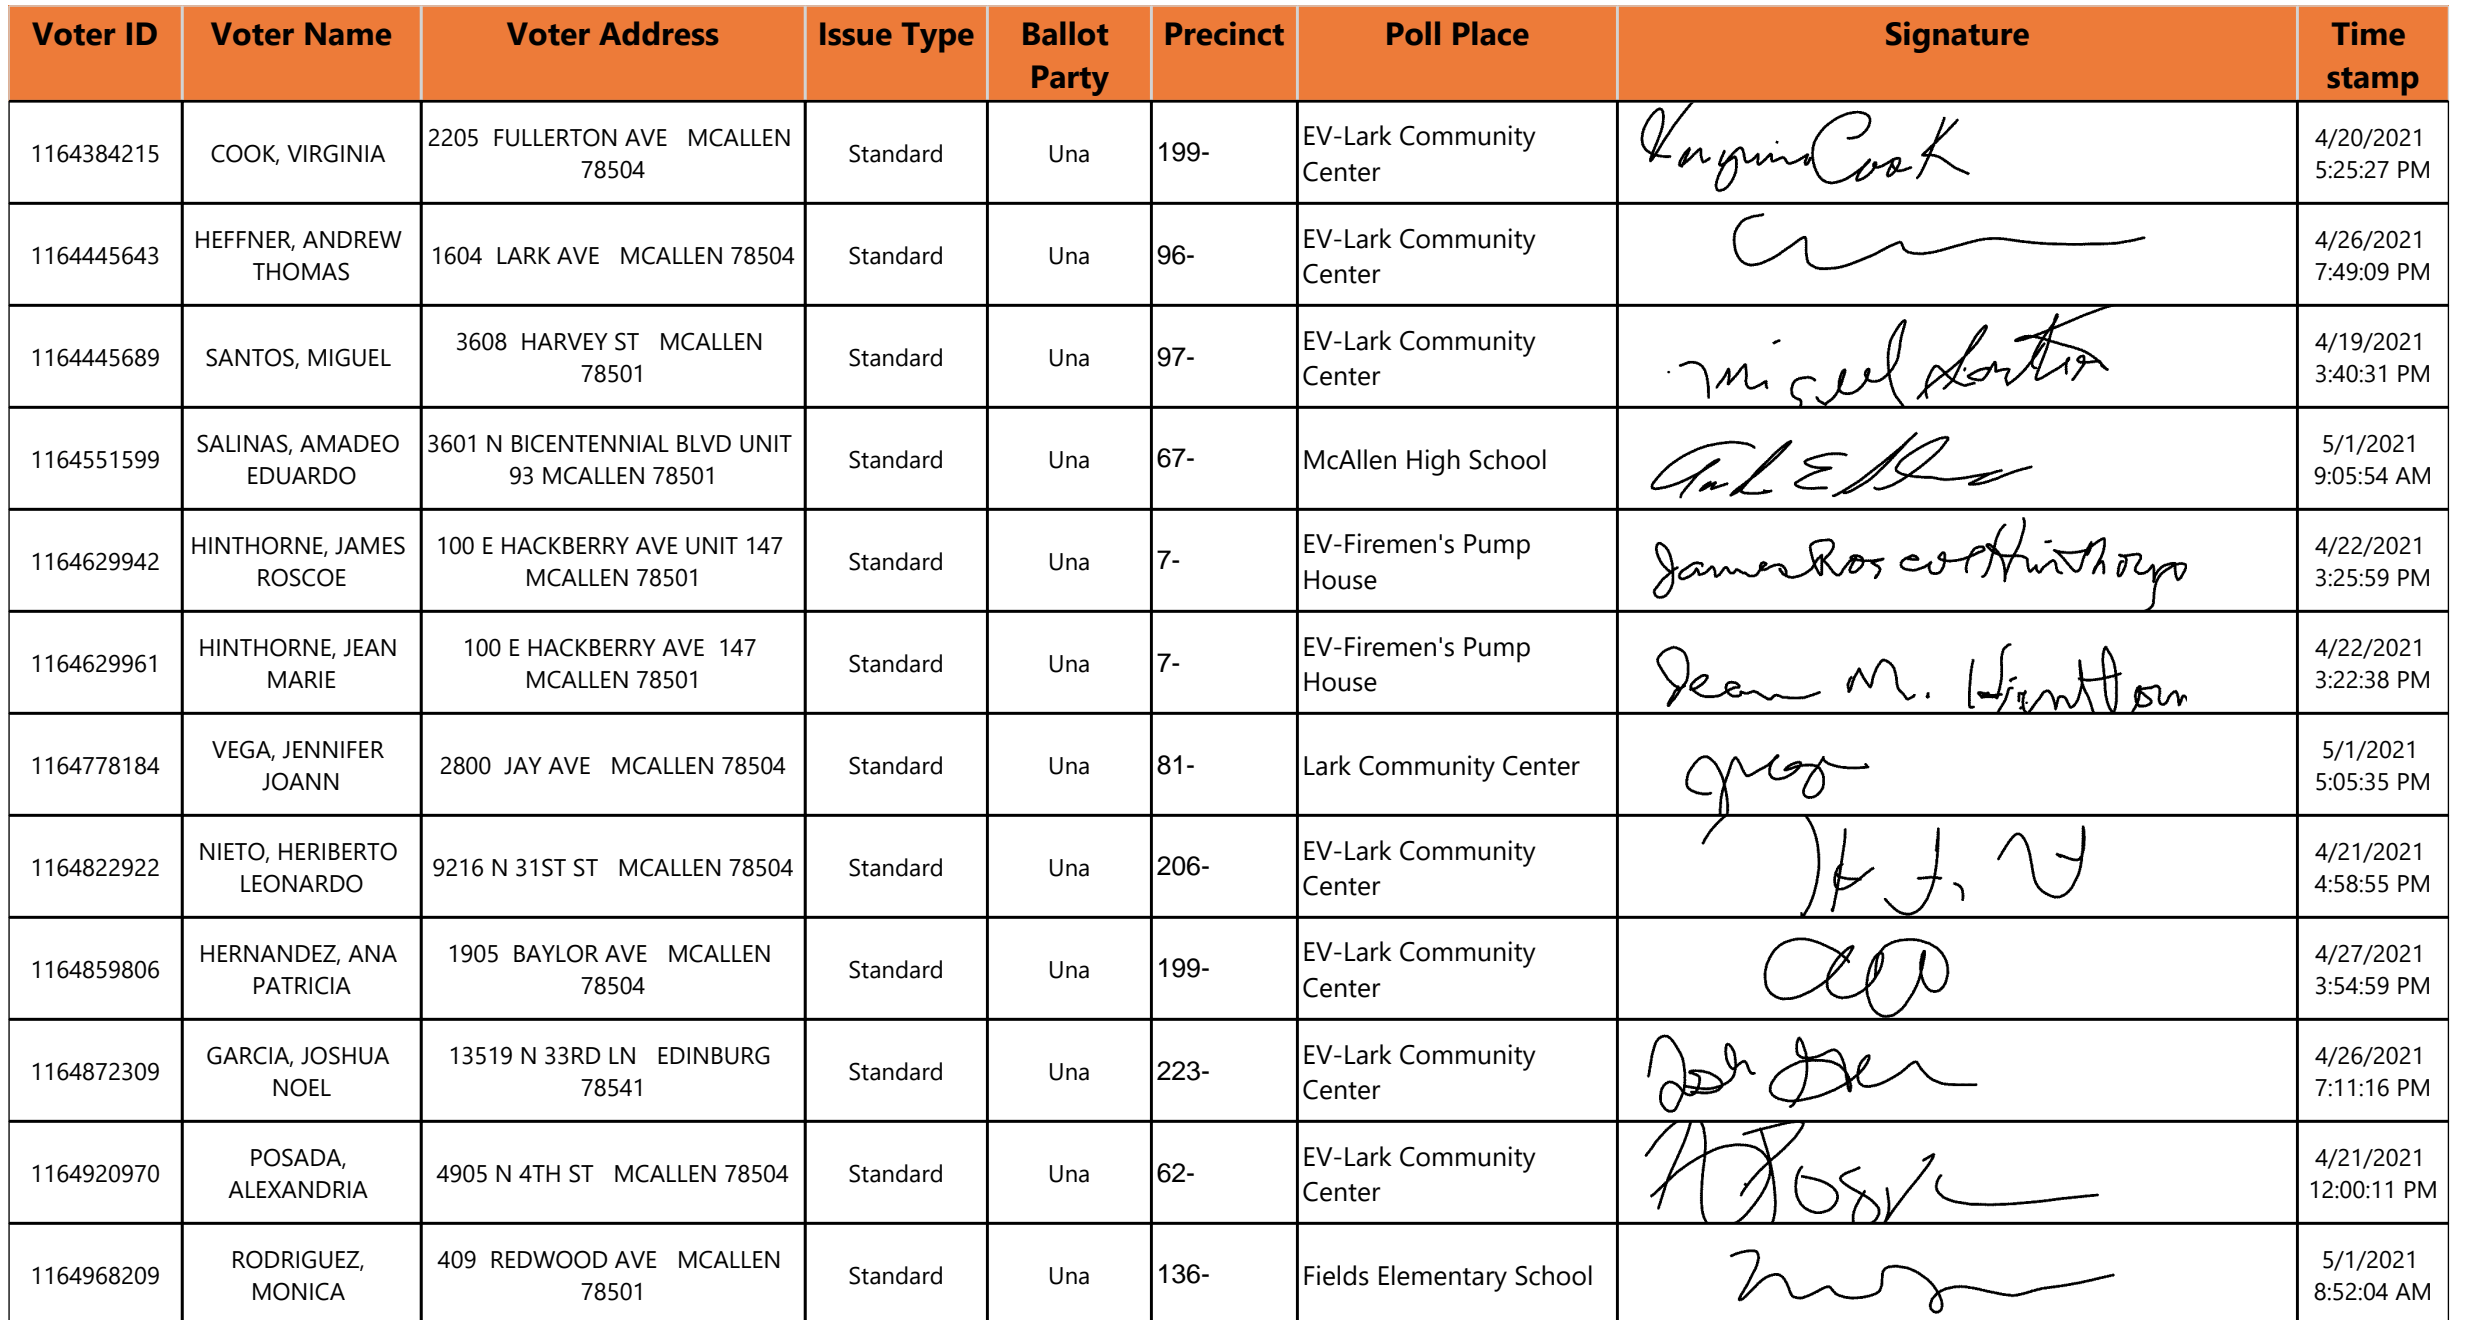 Voter ID Voter Name Voter Address Issue Type Ballot Party Precinct Poll Place Signature Time stamp
1164384215 COOK, VIRGINIA 2205 FULLERTON AVE MCALLEN 78504 Standard Una 199- EV-Lark Community Center Virginia Cook 4/20/2021 5:25:27 PM
1164445643 HEFFNER, ANDREW THOMAS 1604 LARK AVE MCALLEN 78504 Standard Una 96- EV-Lark Community Center 4/26/2021 7:49:09 PM
1164445689 SANTOS, MIGUEL 3608 HARVEY ST MCALLEN 78501 Standard Una 97- EV-Lark Community Center Miguel Santos 4/19/2021 3:40:31 PM
1164551599 SALINAS, AMADEO EDUARDO 3601 N BICENTENNIAL BLVD UNIT 93 MCALLEN 78501 Standard Una 67- McAllen High School 5/1/2021 9:05:54 AM
1164629942 HINTHORNE, JAMES ROSCOE 100 E HACKBERRY AVE UNIT 147 MCALLEN 78501 Standard Una 7- EV-Firemen's Pump House James Roscoe Hinthorne 4/22/2021 3:25:59 PM
1164629961 HINTHORNE, JEAN MARIE 100 E HACKBERRY AVE 147 MCALLEN 78501 Standard Una 7- EV-Firemen's Pump House Jean M. Hinthorn 4/22/2021 3:22:38 PM
1164778184 VEGA, JENNIFER JOANN 2800 JAY AVE MCALLEN 78504 Standard Una 81- Lark Community Center 5/1/2021 5:05:35 PM
1164822922 NIETO, HERIBERTO LEONARDO 9216 N 31ST ST MCALLEN 78504 Standard Una 206- EV-Lark Community Center 4/21/2021 4:58:55 PM
1164859806 HERNANDEZ, ANA PATRICIA 1905 BAYLOR AVE MCALLEN 78504 Standard Una 199- EV-Lark Community Center 4/27/2021 3:54:59 PM
1164872309 GARCIA, JOSHUA NOEL 13519 N 33RD LN EDINBURG 78541 Standard Una 223- EV-Lark Community Center 4/26/2021 7:11:16 PM
1164920970 POSADA, ALEXANDRIA 4905 N 4TH ST MCALLEN 78504 Standard Una 62- EV-Lark Community Center 4/21/2021 12:00:11 PM
1164968209 RODRIGUEZ, MONICA 409 REDWOOD AVE MCALLEN 78501 Standard Una 136- Fields Elementary School 5/1/2021 8:52:04 AM